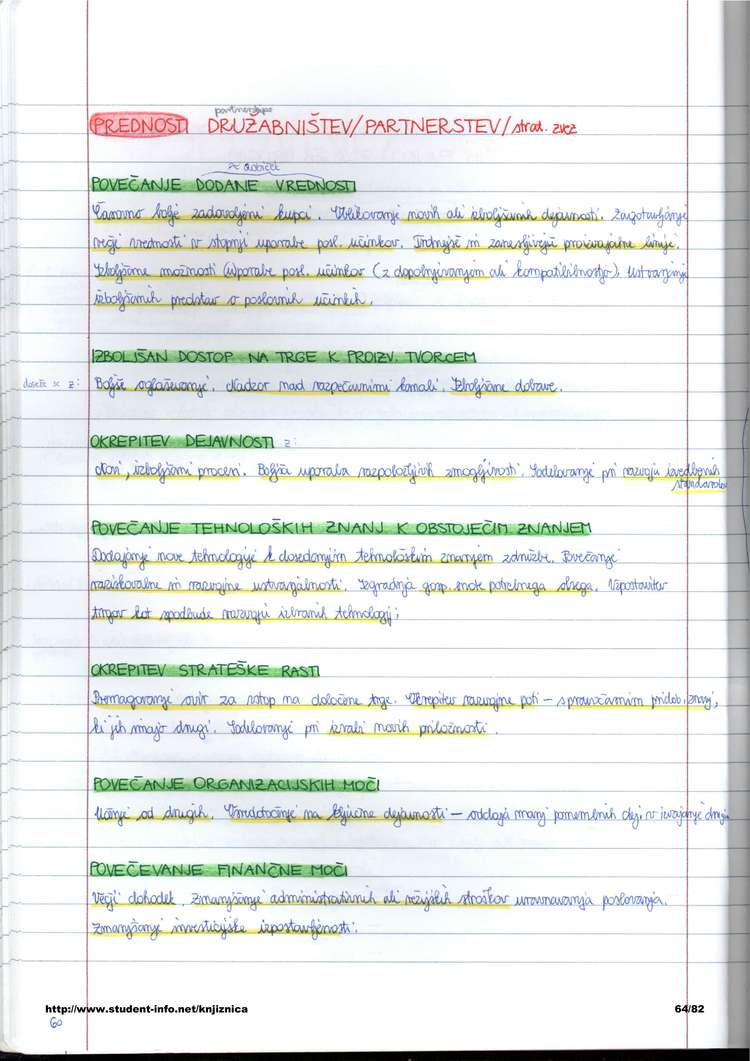 partnerstva
PREDNOSTI DRUŽABNIŠTEV/PARTNERSTEV/strat. zvez
POVEČANJE DODANE VREDNOSTI
Časovno bolje zadovoljeni kupci. Oblikovanje novih ali izboljšanih dejavnosti. Zagotavljanje
večje vrednosti v stopnji uporabe posl. učinkov. Trdnejše in zanesljivejše proizvajalne linije.
Izboljšane možnosti uporabe posl. učinkov (z dopolnjevanjem ali kompatibilnostjo). Ustvarjanje
izboljšanih predstav o poslovnih učinkih.
IZBOLJŠAN DOSTOP NA TRGE K PROIZV. TVORCEM
doseže se z: Boljše oglaševanje. Nadzor nad razpečavnimi kanali. Izboljšane dobave.
OKREPITEV DEJAVNOSTI z:
Novi, izboljšani procesi. Boljša uporaba razpoložljivih zmogljivosti. Sodelovanje pri razvoju izvedbenih
standardov
POVEČANJE TEHNOLOŠKIH ZNANJ K OBSTOJEČIM ZNANJEM
Dodajanje nove tehnologije k dosedanjim tehnološkim znanjem združbe. Povečanje
raziskovalne in razvojne ustvarjalnosti. Izgradnja gosp. enote potrebnega obsega. Vzpostavitev
trgov kot spodbude razvoju izbranih tehnologij;
OKREPITEV STRATEŠKE RASTI
Premagovanje ovir za vstop na določene trge. Okrepitev razvojne poti – s pravočasnim pridob. znanj,
ki jih imajo drugi. Sodelovanje pri izrabi novih priložnosti.
POVEČANJE ORGANIZACIJSKIH MOČI
Učenje od drugih. Osredotočenje na ključne dejavnosti – oddaja manj pomembnih dej. v izvajanje
POVEČEVANJE FINANČNE MOČI
Večji dohodek. Zmanjšanje administrativnih ali režijskih stroškov uravnavanja poslovanja.
Zmanjšanje investicijske izpostavljenosti.
http://www.student-info.net/knjiznica 64/82
60